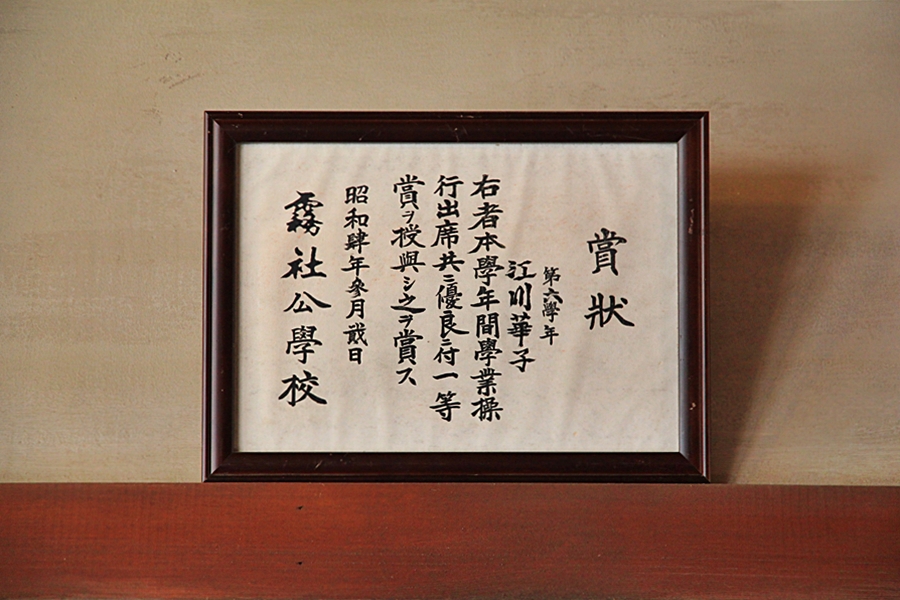 賞狀
第六學年
江川華子
右者本學年間學業操
行出席共ニ優良ニ付一等
賞ヲ授與シ之ヲ賞ス
昭和肆年參月貳日
霧社公學校